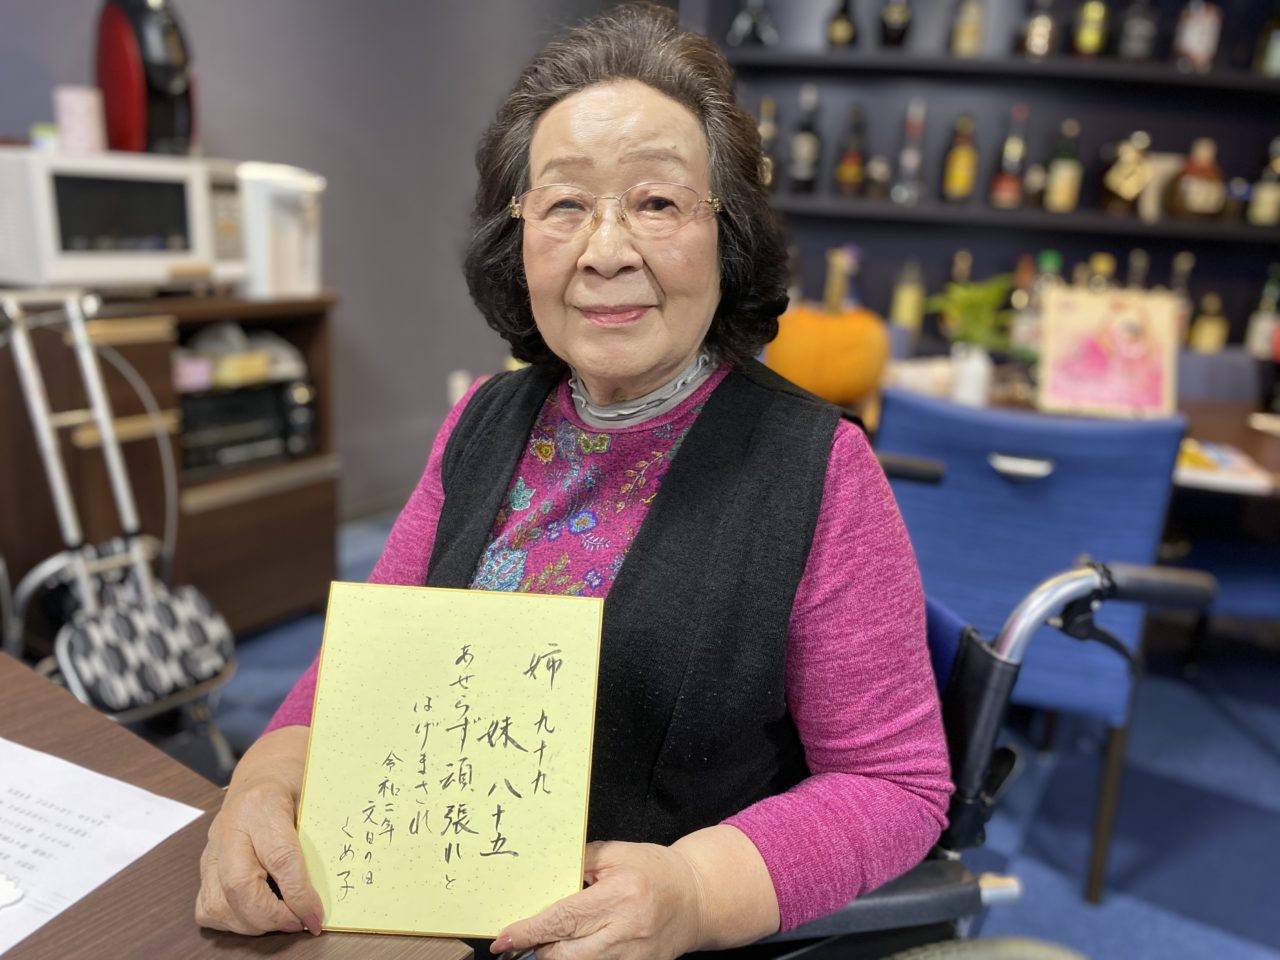 姉 九十九
妹 八十五
あせらず頑張れと
はげまされ
令和二年
文日の日
くめ子